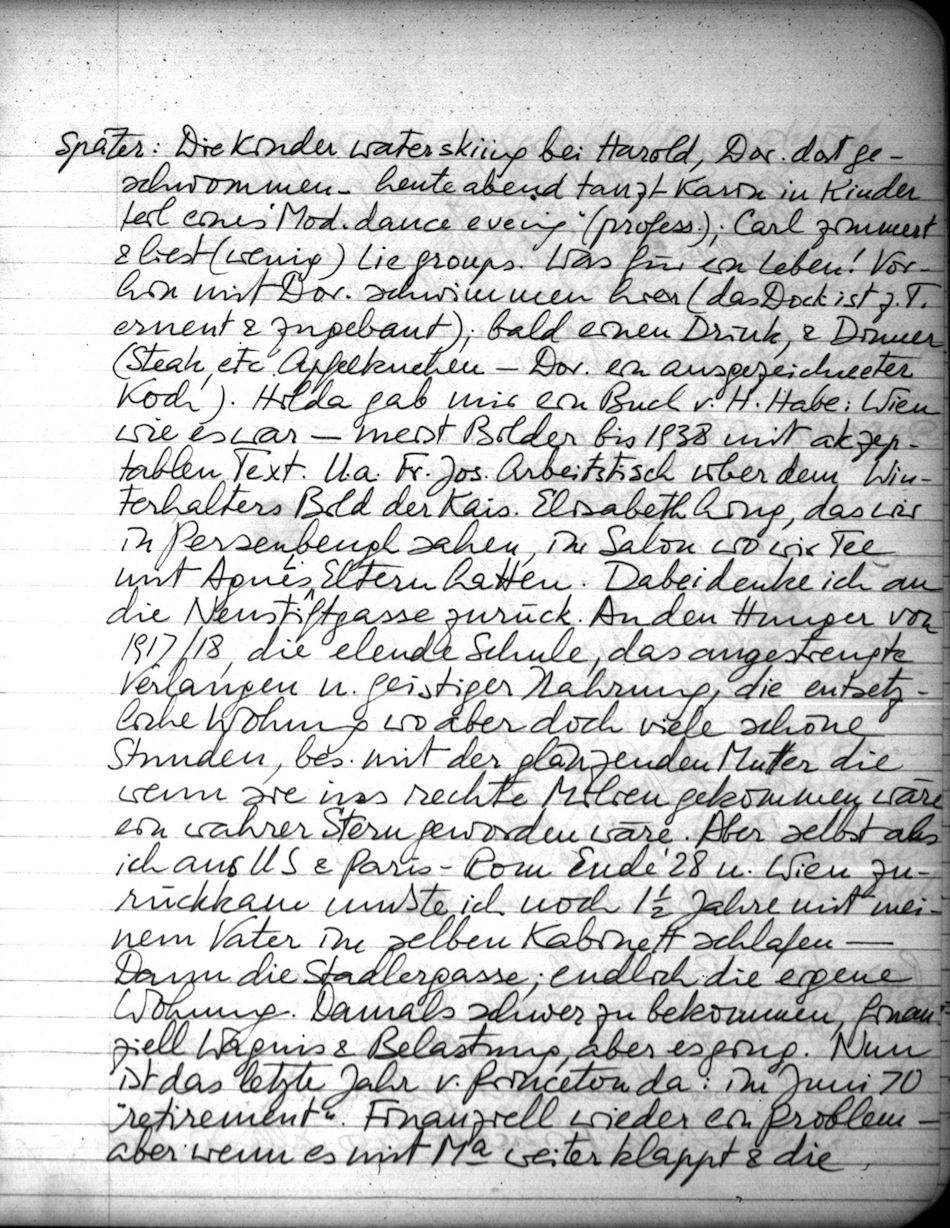 Später: Die Kinder waterskiing bei Harold, Dor. dort ge-
schwommen – heute abend tanzt Karin in Kinder
teil eines "Mod. dance evenig" (profess.); Carl zimmert
& liest (wenig) Lie groups. Was für ein Leben! Vor-
hin mit Dor. schwimmen hier (das Dock ist z.T.
erneut & zugebaut); bald einen Drink, & Dinner
(Steak, etc. Apfelkuchen – Dor. ein ausgezeichneter
Koch). Hilda gab mir ein Buch v. H. Habe: Wien
wie es war – meist Bilder bis 1938 mit akzep-
tablen Text. U.a. Fr. Jos. Arbeitstisch über dem Win-
terhalters Bild der Kais. Elisabeth hing, das wir
in Persenbeugh sahen, im Salon wo wir Tee
mit Agnes Eltern hatten. Dabei denke ich an
die Neustiftgasse zurück. An den Hunger von
1917/18, die elende Schule, das angestrengte
Verlangen n. geistiger Nahrung, die entsetz-
liche Wohnung wo aber doch viele schöne
Stunden, bes. mit der glänzenden Mutter die
wenn sie ins rechte Milieu gekommen wäre
ein wahrer Stern geworden wäre. Aber selbst als
ich aus US & Paris – Rom Ende '28 n. Wien zu-
rückkam musste ich noch 1½ Jahre mit mei-
nem Vater im selben Kabinett schlafen —
Dann die Stadlergasse; endlich die eigene
Wohnung. Damals schwer zu bekommen, finan-
ziell Wagnis & Belastung, aber es ging. Nun
ist das letzte Jahr v. Princeton da: im Juni 70
"retirement". Finanziell wieder ein Problem –
aber wenn es mit Ma weiter klappt & die